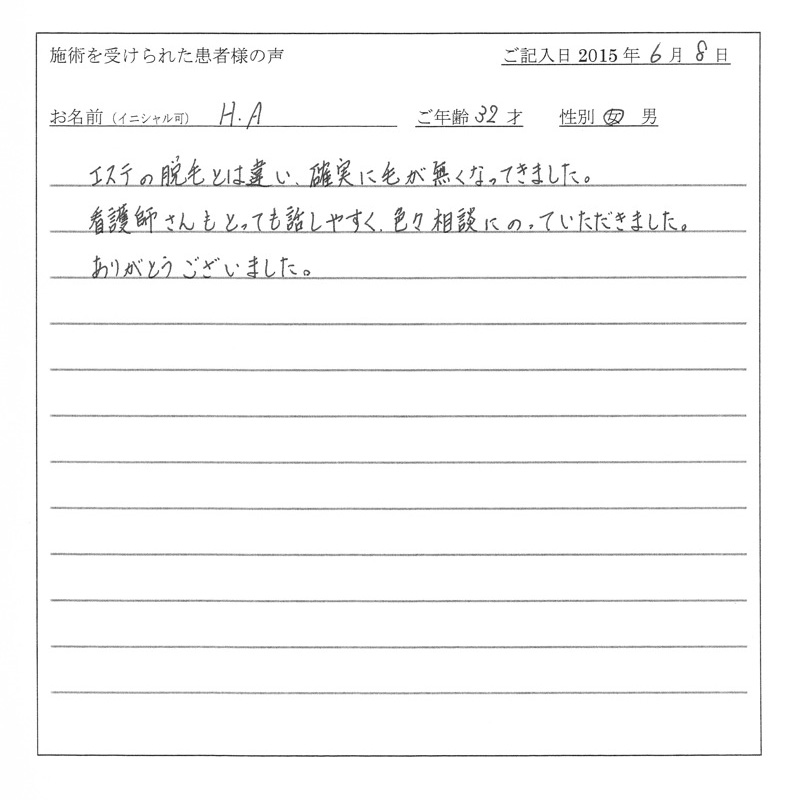 施術を受けられた患者様の声 ご記入日 2015 年 6 月 8 日
お名前（イニシャル可） H.A ご年齢 32 才 性別 女 男
エステの脱毛とは違い、確実に毛が無くなってきました。
看護師さんもとっても話しやすく、色々相談にのっていただきました。
ありがとうございました。